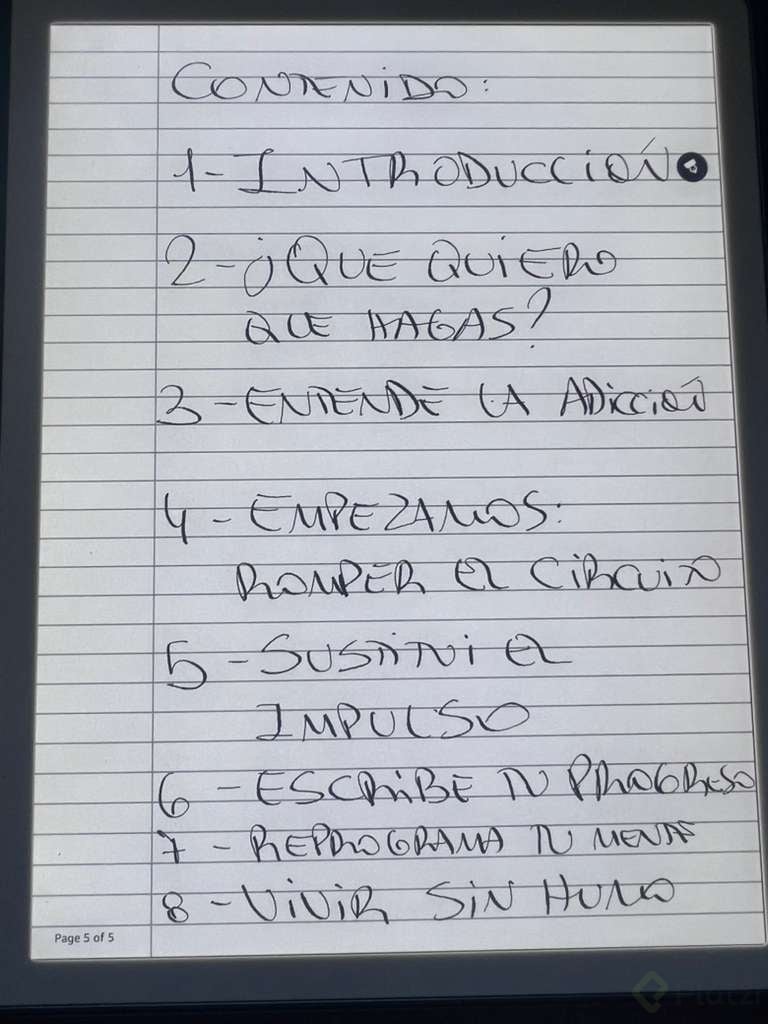 CONTENIDO:
1-INTRODUCCIÓN
2-¿QUE QUIERO
QUE HAGAS?
3-ENTENDE LA ADICCIÓN
4-EMPEZAMOS:
ROMPER EL CIRCUITO
5-SUSTITUI EL
IMPULSO
6-ESCRIBE TU PROGRESO
7-REPROGRAMA TU MENTE
8-VIVIR SIN HUMO
Page 5 of 5
Platzi